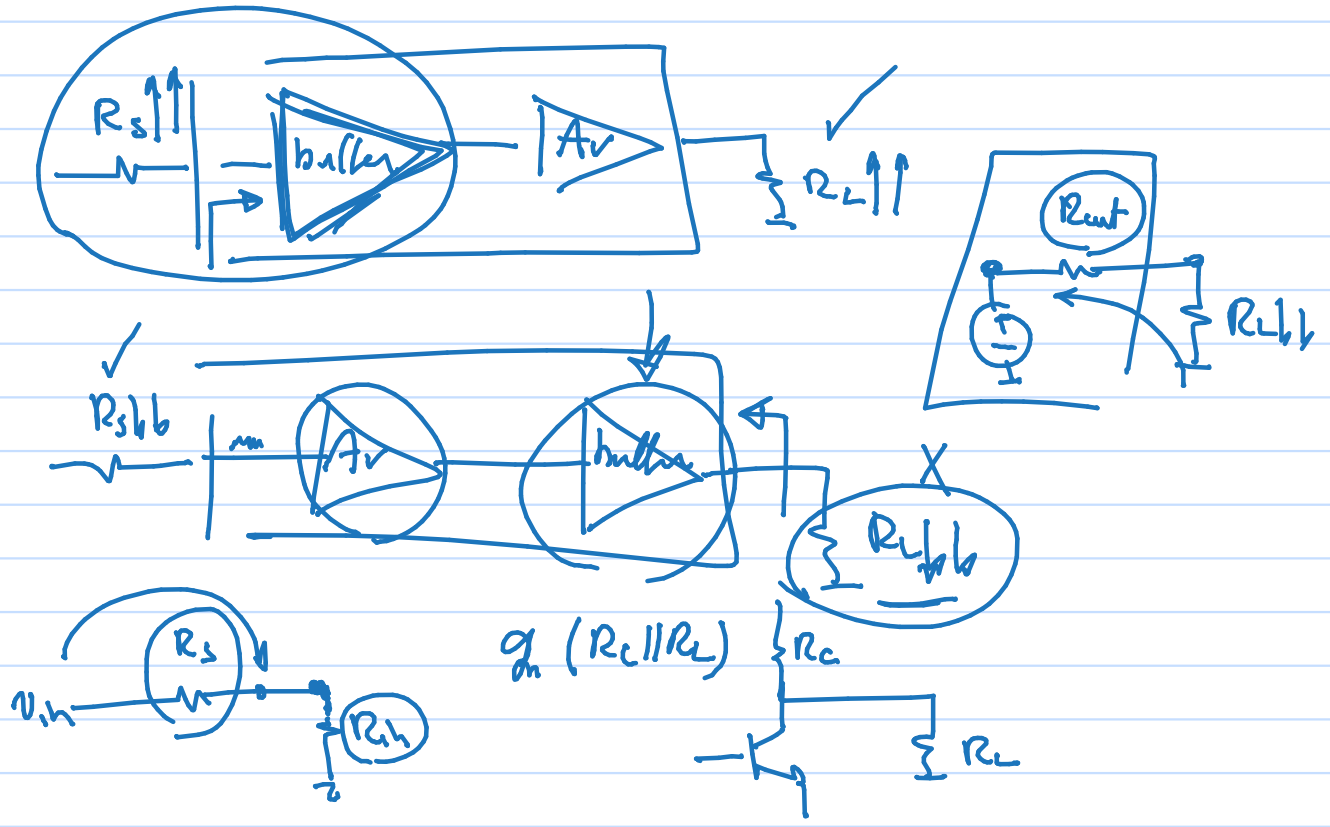 Rs↑↑
buffer
Av
RL↑↑
Rout
RL↓↓
Rs↓↓
Av
buffer
RL↓↓
Rs
gm (RC||RL)
RC
Vin
Rin
RL